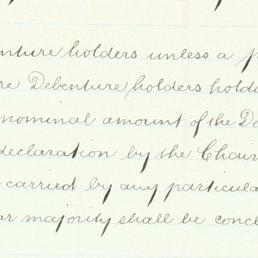 enture holders unless a p
re Debenture holders hold
nominal amount of the De
declaration by the Chair
carried by any particula
ar majority shall be conc